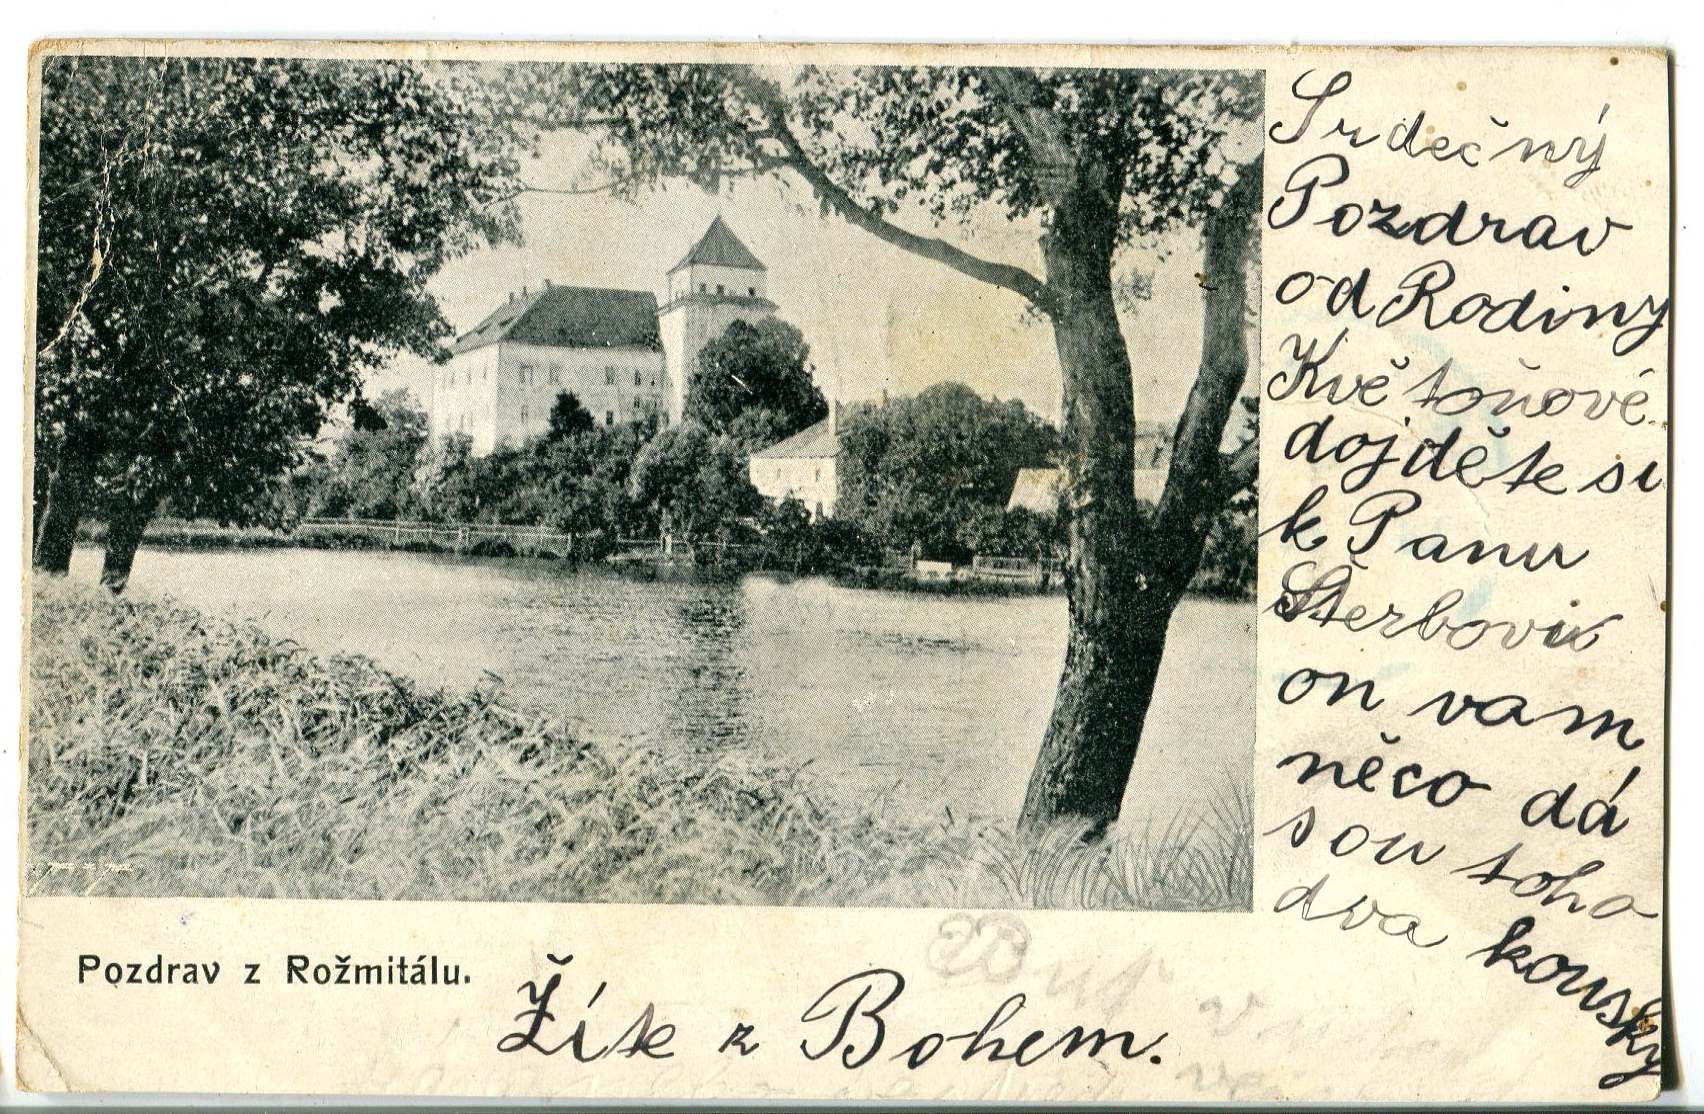 Srdečný
Pozdrav
od Rodiny
Květoňové
dojděte si
k Panu
Šterbovu
on vam
něco dá
sou toho
dva kousky
Pozdrav z Rožmitálu.
Žíte z Bohem.